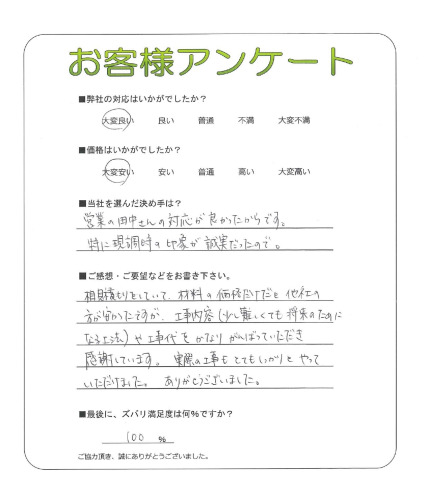 お客様アンケート
■弊社の対応はいかがでしたか？
大変良い 良い 普通 不満 大変不満
■価格はいかがでしたか？
大変安い 安い 普通 高い 大変高い
■当社を選んだ決め手は？
営業の田中さんの対応が良かったからです。
特に現調時の印象が誠実だったので。
■ご感想・ご要望などをお書き下さい。
相見積もりをしていて、材料の価格だけだと他社の
方が安かったですが、工事内容(少し難しくても将来のために
なる工法)や工事代をかなりがんばっていただき
感謝しています。実際の工事もとてもしっかりとやって
いただけました。ありがとうございました。
■最後に、ズバリ満足度は何%ですか？
100 %
ご協力頂き、誠にありがとうございました。